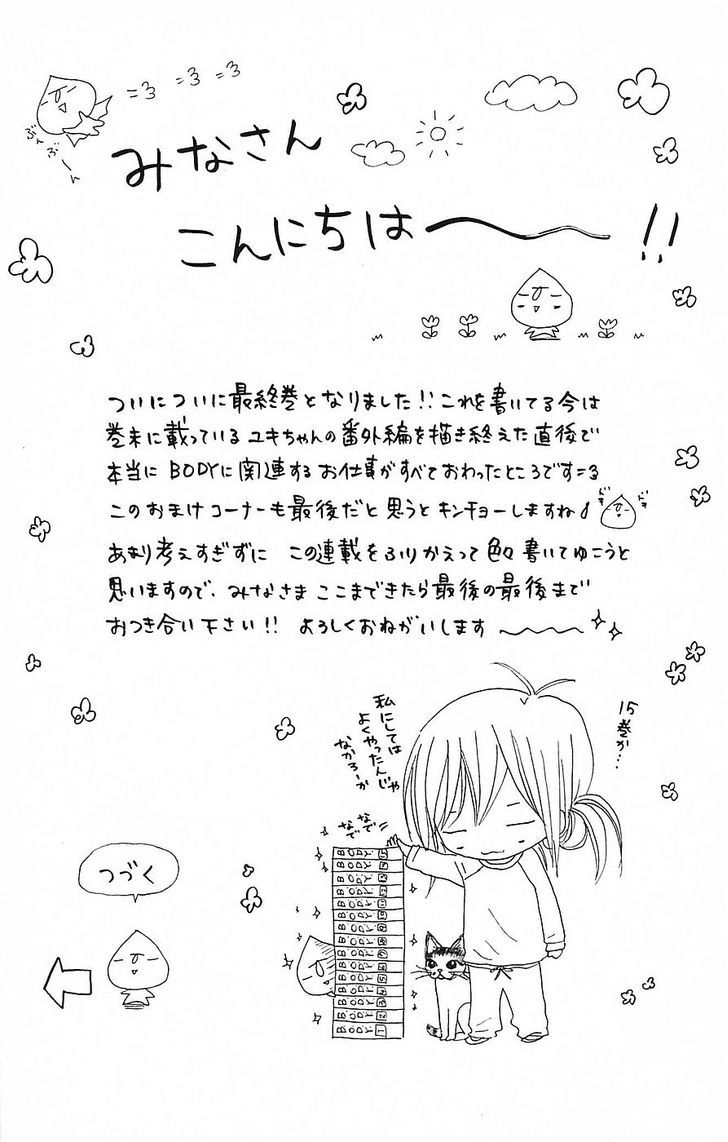 ぶんぶーん
みなさん
こんにちは〜!!
ついについに最終巻となりました!!これを書いてる今は
巻末に載っているユキちゃんの番外編を描き終えた直後で
本当にBODYに関連するお仕事がすべておわったところです=3
このおまけコーナーも最後だと思うとキンチョーしますね
ドキドキ
あまり考えすぎずに この連載をふりかえって色々書いてゆこうと
思いますので、みなさまここまできたら最後の最後まで
おつき合い下さい!! よろしくおねがいします〜
15巻か…
私にしては
よくやったんじゃ
なかろーか
なでなで
BODY 15
BODY 14
BODY 13
BODY 12
BODY 11
BODY 10
BODY 9
BODY 8
BODY 7
BODY 6
BODY 5
BODY 4
BODY 3
BODY 2
BODY 1
つづく